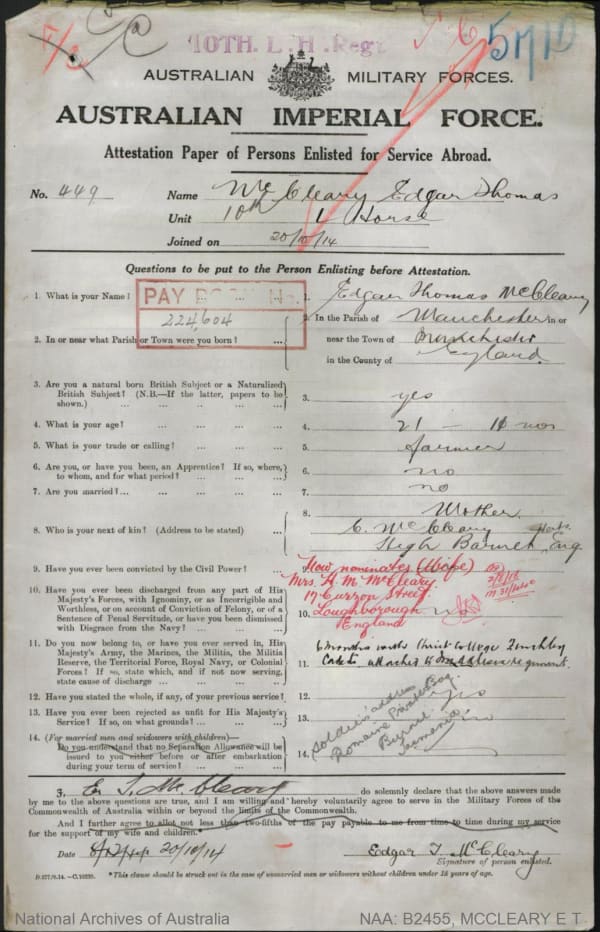 10TH. L. H. Regt
5710
AUSTRALIAN MILITARY FORCES.
AUSTRALIAN IMPERIAL FORCE.
Attestation Paper of Persons Enlisted for Service Abroad.
No. 449 Name McCleary Edgar Thomas
Unit 10th L Horse
Joined on 20/10/14
Questions to be put to the Person Enlisting before Attestation.
1. What is your Name? ... ... ... 1. Edgar Thomas McCleary
PAY
224604
2. In or near what Parish or Town were you born? ... 2. In the Parish of Manchester in or
near the Town of Manchester
in the County of England.
3. Are you a natural born British Subject or a Naturalized
British Subject? (N.B.—If the latter, papers to be
shown.) ... ... ... ... 3. yes
4. What is your age? ... ... ... 4. 21 – 10 mos
5. What is your trade or calling? ... ... ... 5. farmer
6. Are you, or have you been, an Apprentice? If so, where,
to whom, and for what period? ... ... ... 6. no
7. Are you married? ... ... ... ... 7. no
8. Who is your next of kin? (Address to be stated) ... 8. Mother
C. McCleary Herts.
High Barnet Eng
9. Have you ever been convicted by the Civil Power? ... 9.
Now nominates (Wife)
Mrs. H. M. McCleary
17 Curzon Street
Loughborough
England
10. Have you ever been discharged from any part of His
Majesty's Forces, with Ignominy, or as Incorrigible and
Worthless, or on account of Conviction of Felony, or of a
Sentence of Penal Servitude, or have you been dismissed
with Disgrace from the Navy? ... ... ... 10.
11. Do you now belong to, or have you ever served in, His
Majesty's Army, the Marines, the Militia, the Militia
Reserve, the Territorial Force, Royal Navy, or Colonial
Forces? If so, state which, and if not now serving,
state cause of discharge ... ... ... 11. 6 months with Christ College Finchley
Cadets attached to Middlesex regiment.
12. Have you stated the whole, if any, of your previous service? 12. yes
13. Have you ever been rejected as unfit for His Majesty's
Service? If so, on what grounds? ... ... 13. no
14. (For married men and widowers with children)—
Do you understand that no Separation Allowance will be
issued to you either before or after embarkation
during your term of service? ... ... ... 14.
Soldier's address
Romaine
Burnie
Tasmania
3. E. T. McCleary do solemnly declare that the above answers made
by me to the above questions are true, and I am willing and hereby voluntarily agree to serve in the Military Forces of the
Commonwealth of Australia within or beyond the limits of the Commonwealth.
And I further agree to allot not less than two-fifths of the pay payable to me from time to time during my service
for the support of my wife and children.*
Date 20/10/14 Edgar T. McCleary
Signature of person enlisted.
D.277/9.14.—C.10239. *This clause should be struck out in the case of unmarried men or widowers without children under 18 years of age.
National Archives of Australia NAA: B2455, MCCLEARY E T